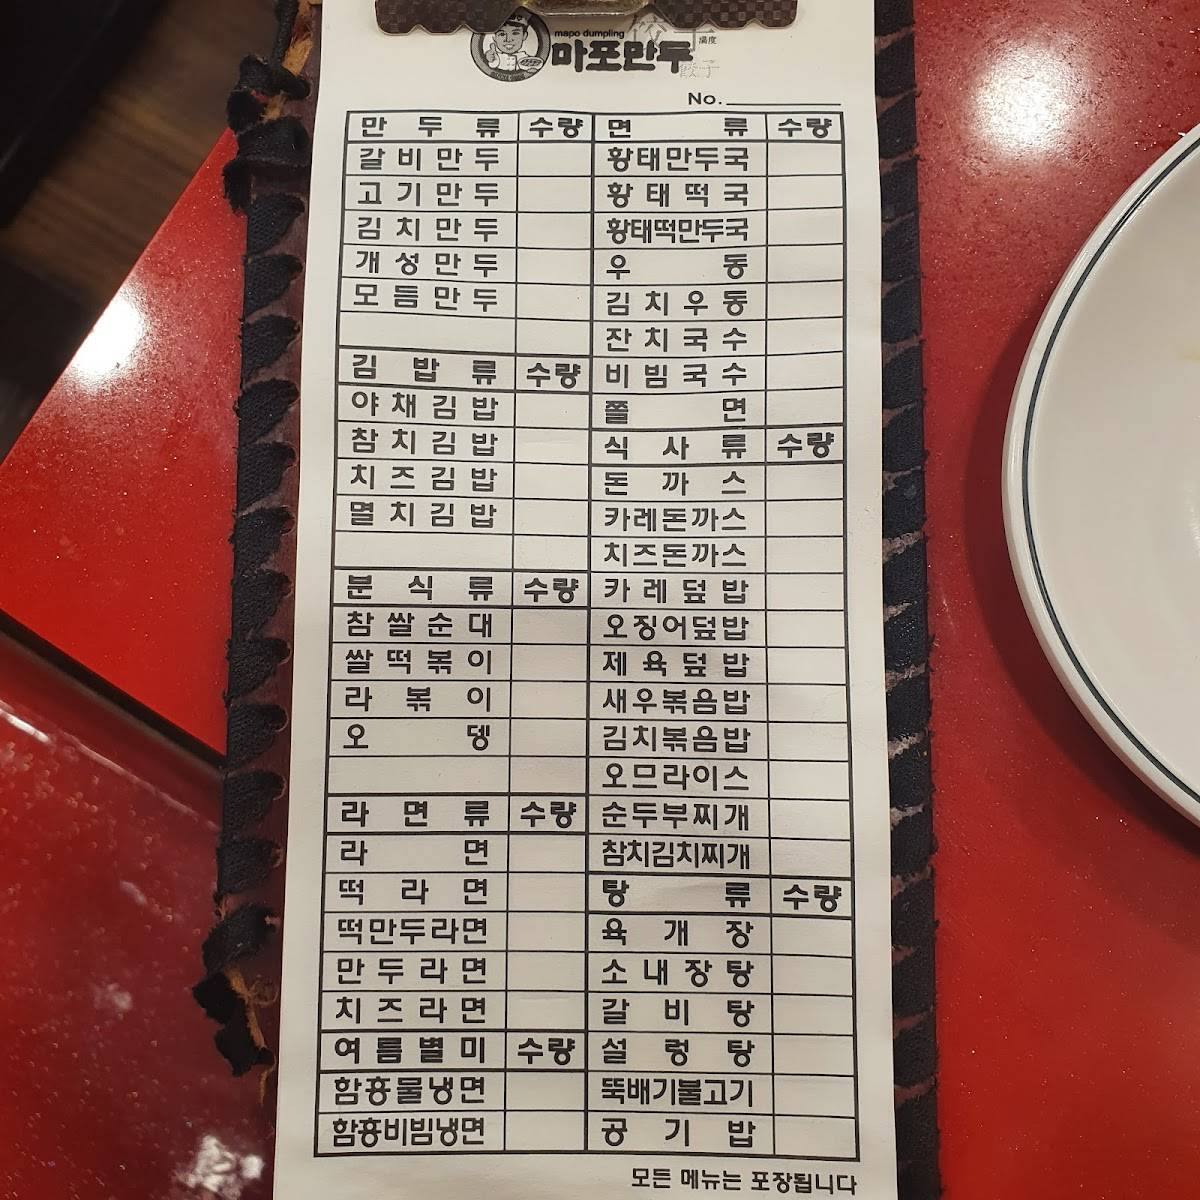 mapo dumpling
마포만두
餃子
No.
만두류 수량
갈비만두
고기만두
김치만두
개성만두
모듬만두
김밥류 수량
야채김밥
참치김밥
치즈김밥
멸치김밥
분식류 수량
참쌀순대
쌀떡볶이
라볶이
오뎅
라면류 수량
라면
떡라면
떡만두라면
만두라면
치즈라면
여름별미 수량
함흥물냉면
함흥비빔냉면
면류 수량
황태만두국
황태떡국
황태떡만두국
우동
김치우동
잔치국수
비빔국수
쫄면
식사류 수량
돈까스
카레돈까스
치즈돈까스
카레덮밥
오징어덮밥
제육덮밥
새우볶음밥
김치볶음밥
오므라이스
순두부찌개
참치김치찌개
탕류 수량
육개장
소내장탕
갈비탕
설렁탕
뚝배기불고기
공기밥
모든 메뉴는 포장됩니다